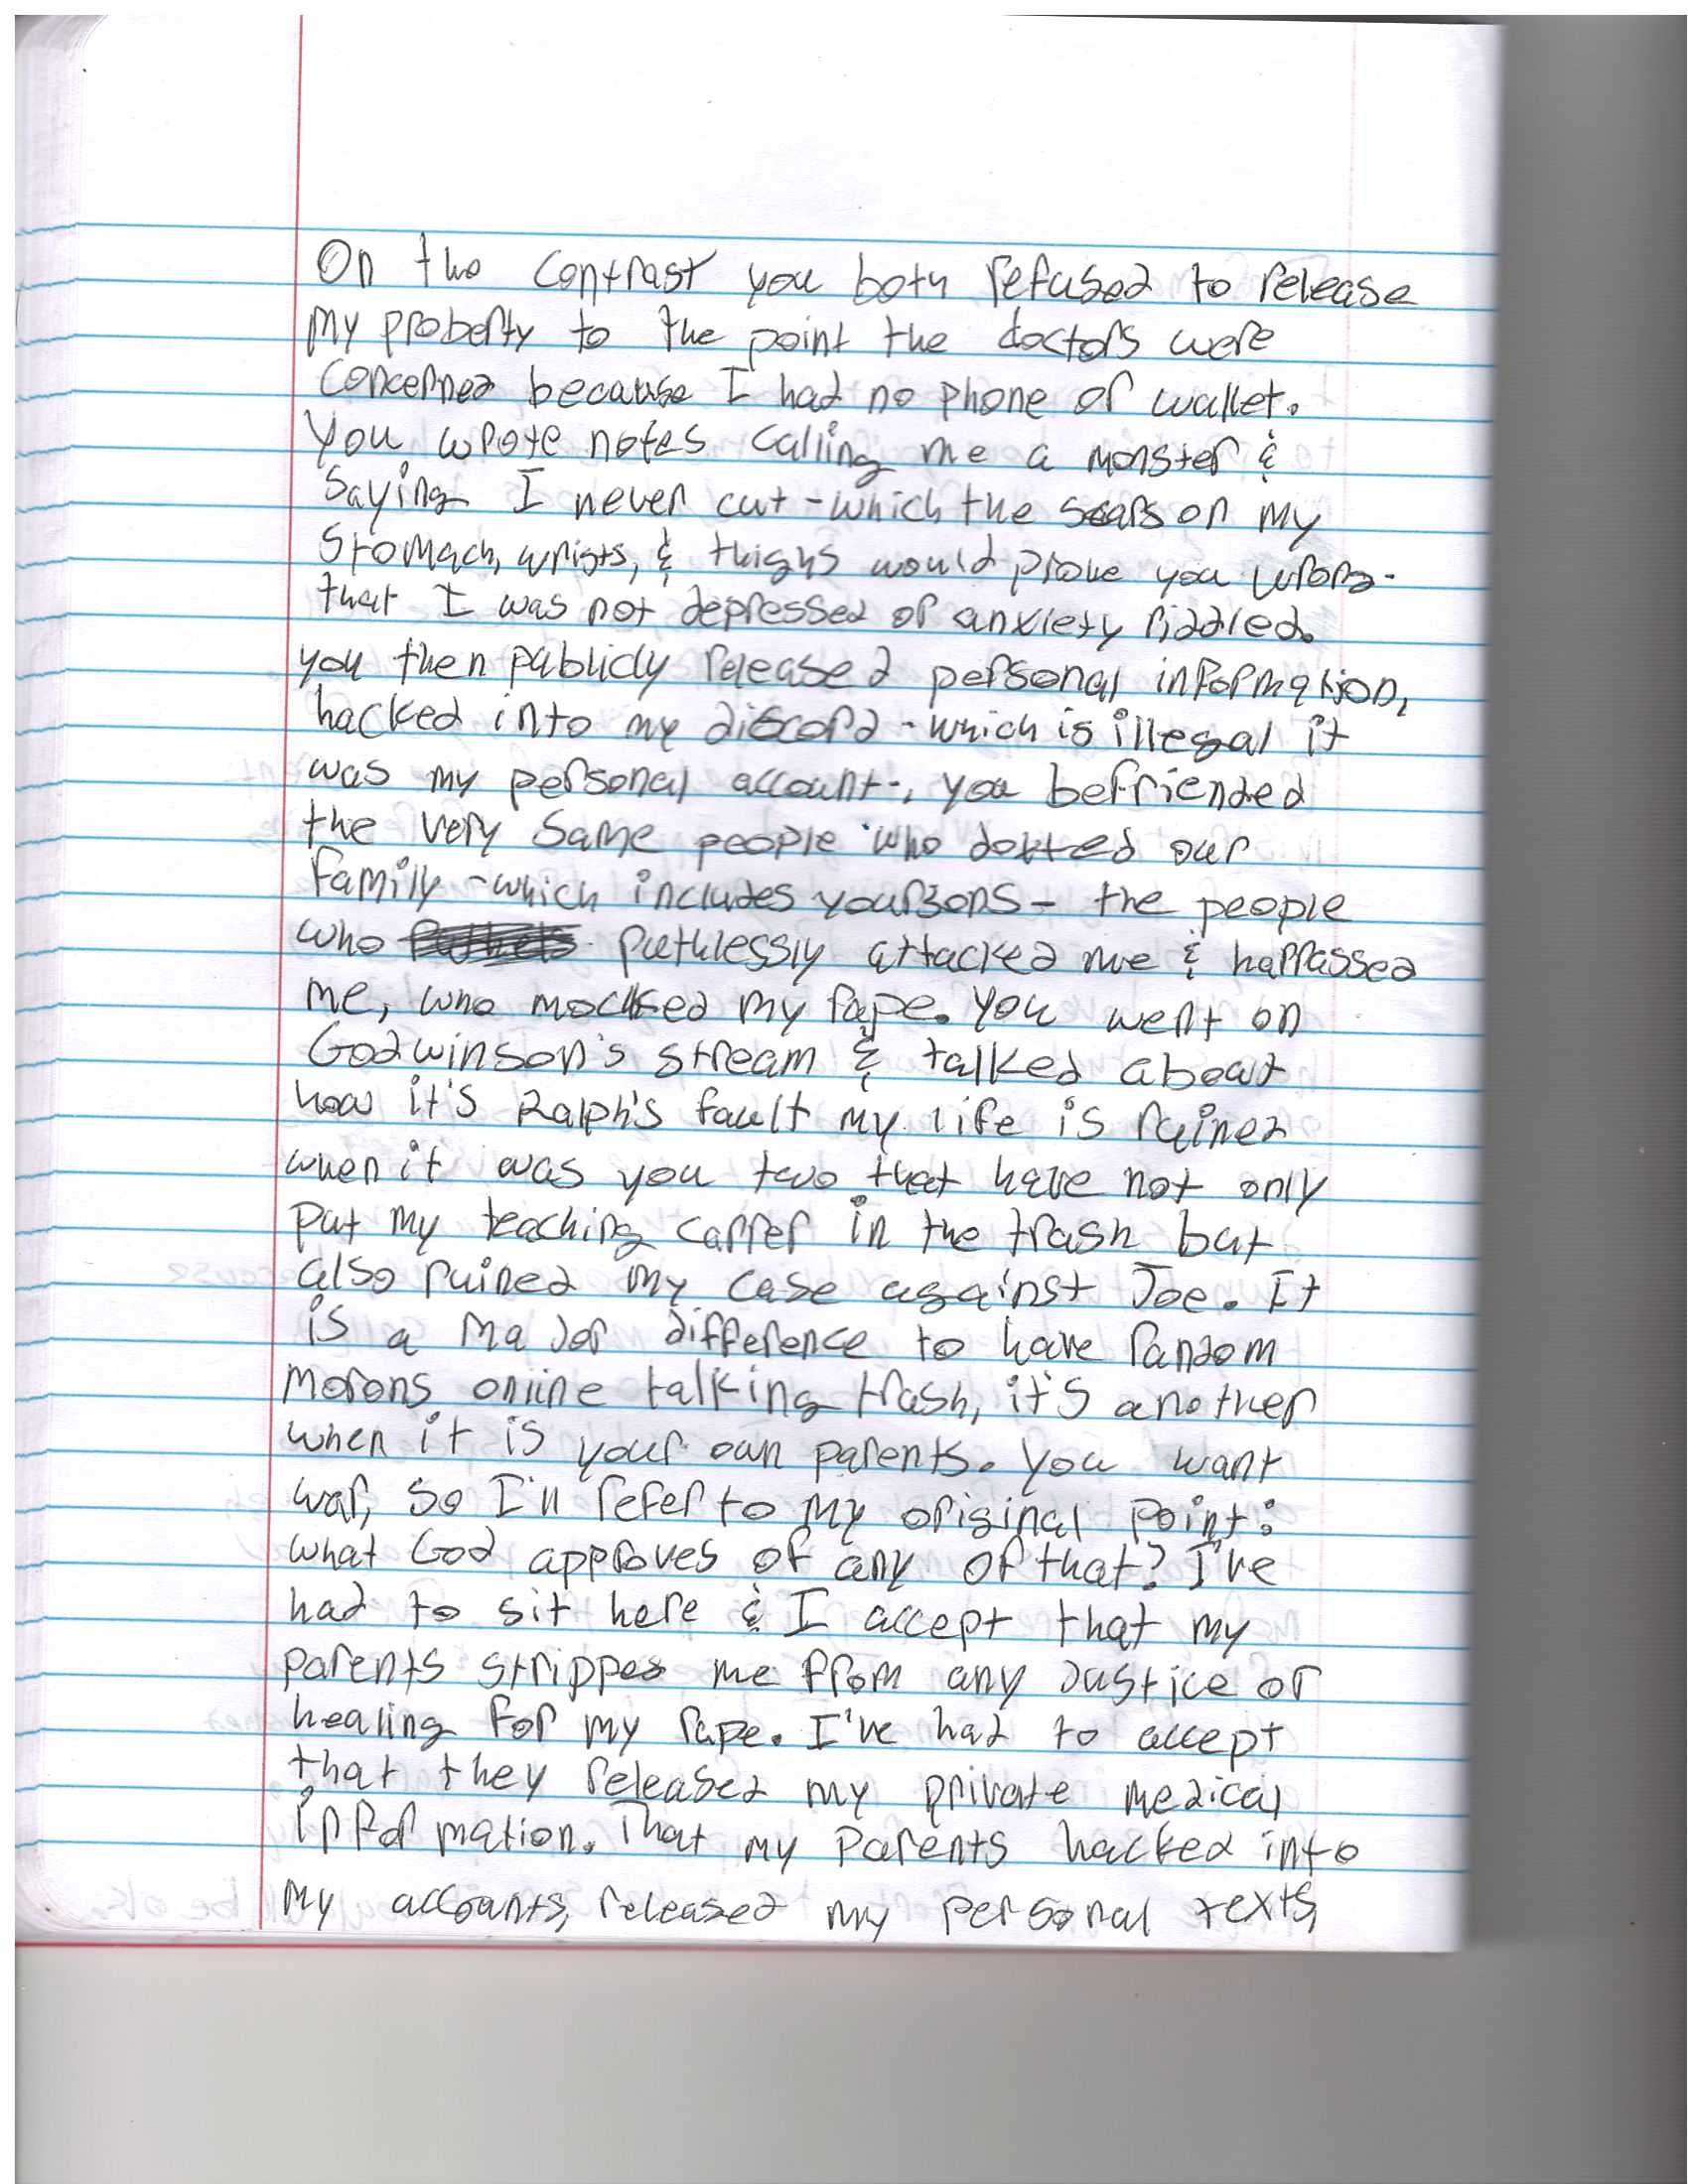 On the contrast you both refused to release
my proberty to the point the doctors were
concerned because I had no phone or wallet.
You wrote notes calling me a monster &
saying I never cut - which the scars on my
stomach, wrists, & thighs would prove you wrong -
that I was not depressed or anxiety riddled.
you then publicly released personal information,
hacked into my discord - which is illegal it
was my personal account -, you befriended
the very same people who doxted our
family - which includes your sons - the people
who ruthlessly attacked me & harrassed
me, who mocked my rape. You went on
Godwinson's stream & talked about
how it's Ralph's fault my life is ruined
when it was you two that have not only
put my teaching carrer in the trash but
also ruined my case against Joe. It
is a major difference to have random
morons online talking trash, it's another
when it is your own parents. You want
war, so I'll refer to my original point:
what God approves of any of that? I've
had to sit here & I accept that my
parents stripped me from any justice or
healing for my rape. I've had to accept
that they released my private medical
information. That my parents hacked into
my accounts, released my personal texts,